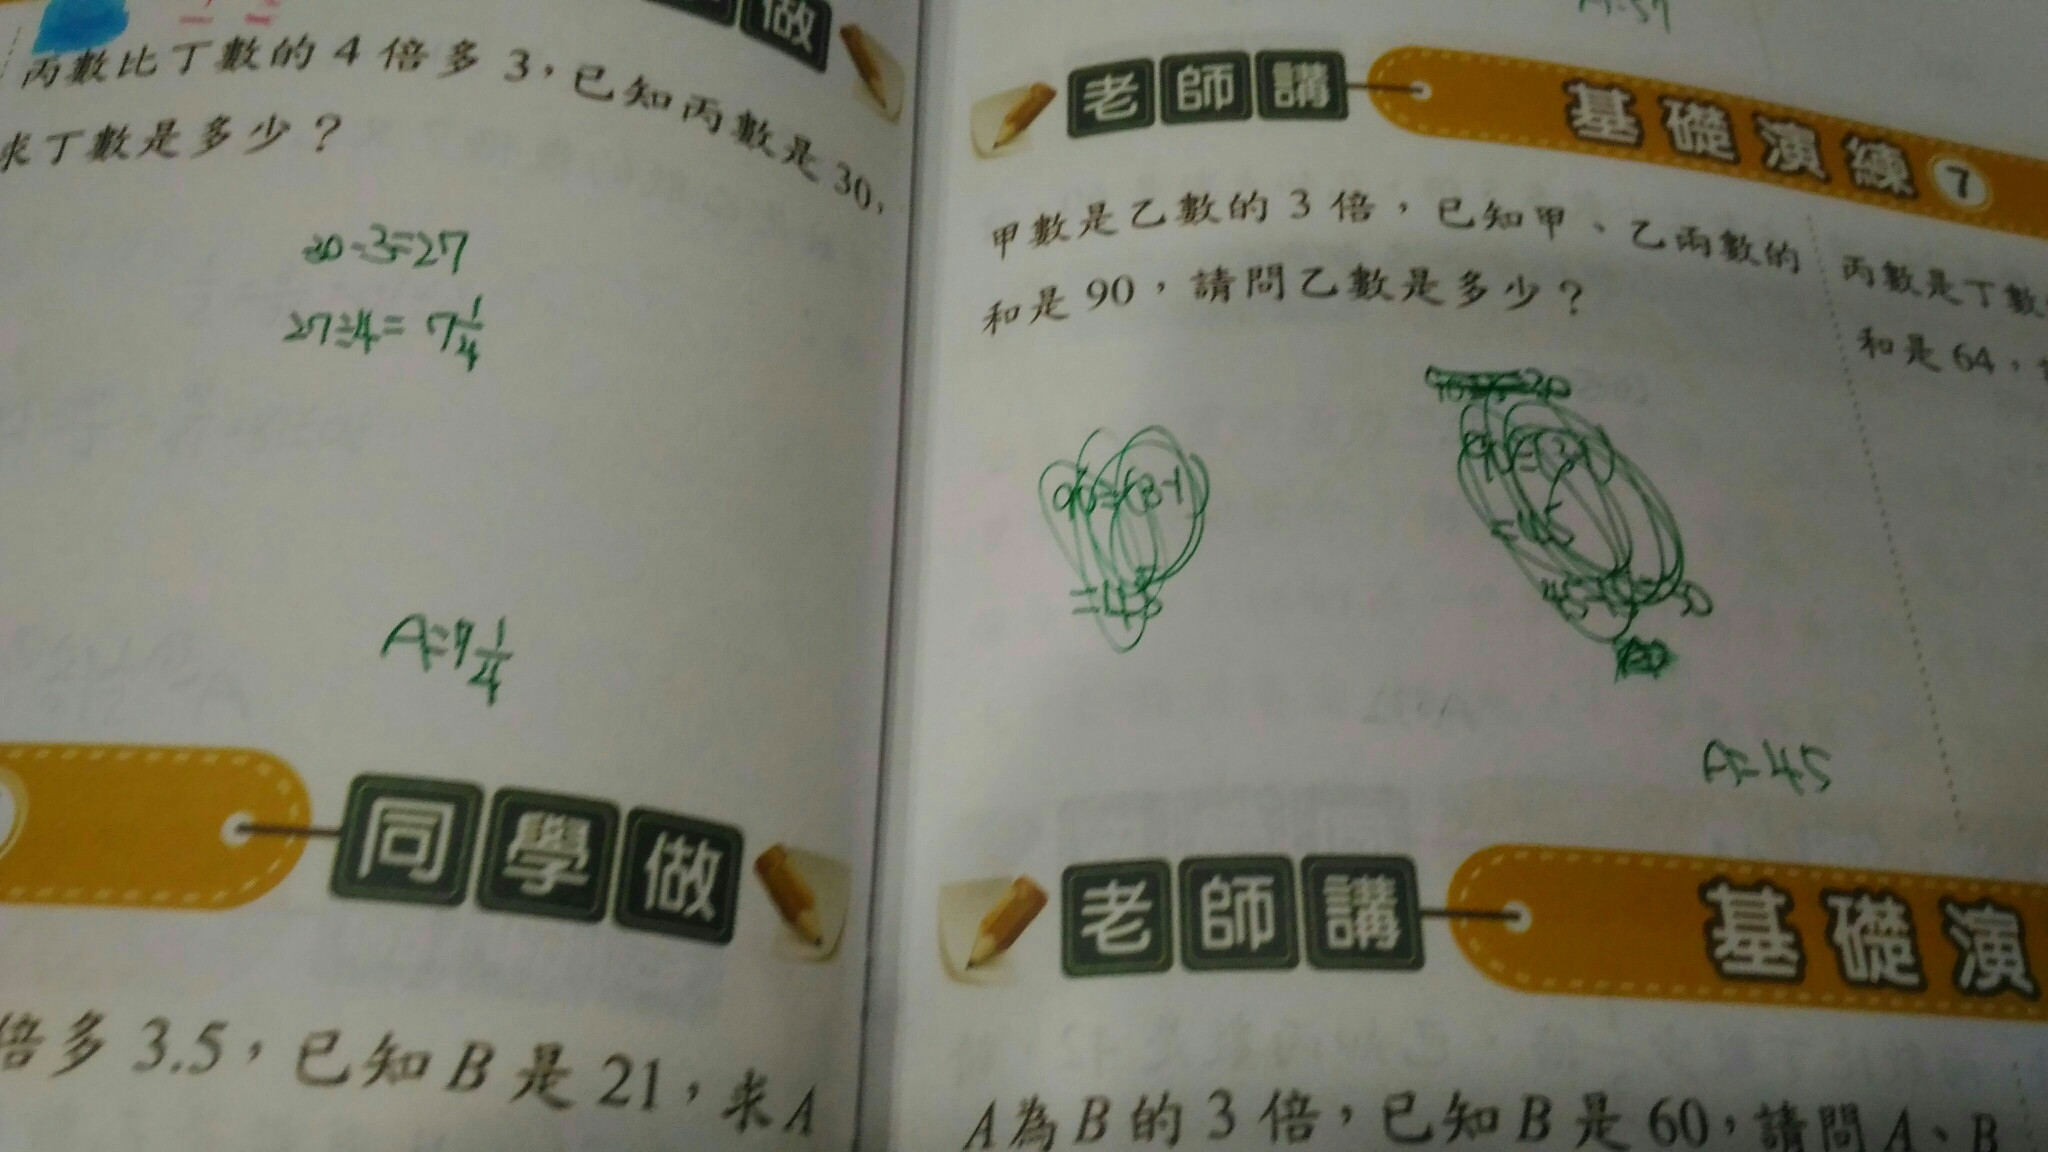 做
丙數比丁數的 4 倍多 3，已知丙數是 30，
求丁數是多少？
30-3=27
27÷4= 7 1/4
A=7 1/4
同學做
倍多 3.5，已知 B 是 21，求 A
老師講
基礎演練 7
甲數是乙數的 3 倍，已知甲、乙兩數的
和是 90，請問乙數是多少？
90÷(3-1)
=45
丙數是丁數
和是 64，
老師講
基礎演
A 為 B 的 3 倍，已知 B 是 60，請問 A、B